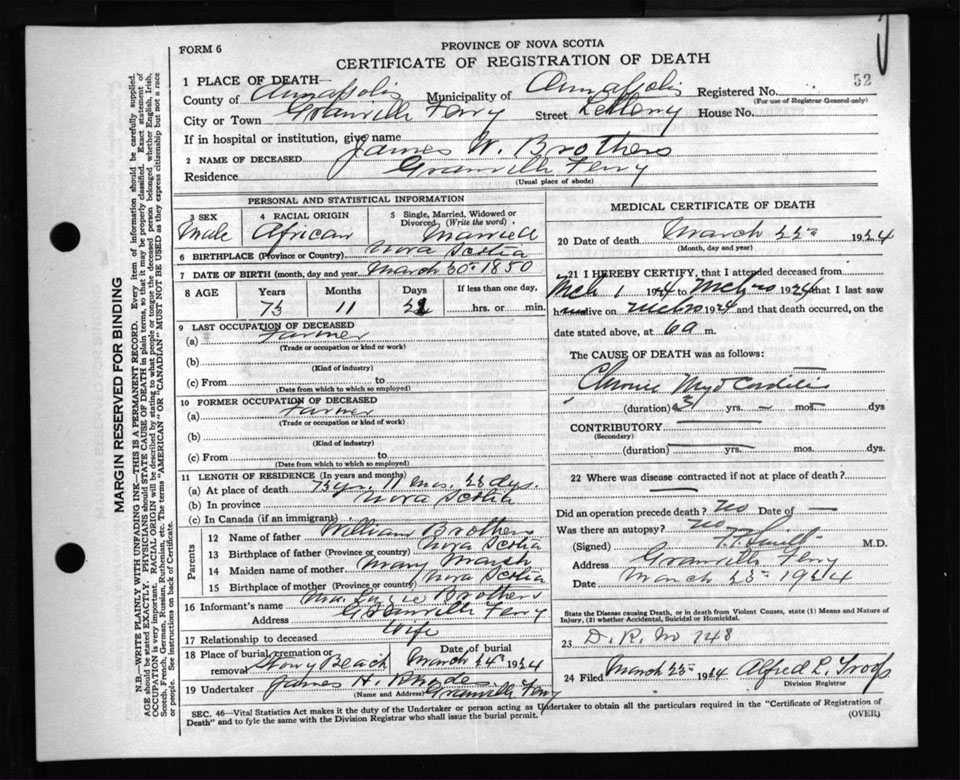 FORM 6
PROVINCE OF NOVA SCOTIA
CERTIFICATE OF REGISTRATION OF DEATH
52
1 PLACE OF DEATH—
County of Annapolis Municipality of Annapolis Registered No.
(For use of Registrar General only)
City or Town Granville Ferry Street House No.
If in hospital or institution, give name
2 NAME OF DECEASED James W. Brothers
Residence Granville Ferry
(Usual place of abode)
PERSONAL AND STATISTICAL INFORMATION
3 SEX Male
4 RACIAL ORIGIN African
5 Single, Married, Widowed or Divorced (Write the word) Married
6 BIRTHPLACE (Province or Country) Nova Scotia
7 DATE OF BIRTH (month, day and year) March 30th 1850
8 AGE Years 73 Months 11 Days If less than one day, hrs. or min.
9 LAST OCCUPATION OF DECEASED
(a) Farmer
(Trade or occupation or kind of work)
(b)
(Kind of industry)
(c) From to
(Date from which to which so employed)
10 FORMER OCCUPATION OF DECEASED
(a) Farmer
(Trade or occupation or kind of work)
(b)
(Kind of industry)
(c) From to
(Date from which to which so employed)
11 LENGTH OF RESIDENCE (In years and months)
(a) At place of death 73 yrs. 11 mos. dys.
(b) In province Nova Scotia
(c) In Canada (if an immigrant)
Parents
12 Name of father William Brothers
13 Birthplace of father (Province or country) Nova Scotia
14 Maiden name of mother Mary Marsh
15 Birthplace of mother (Province or country) Nova Scotia
16 Informant's name Mrs. Brothers
Address Granville Ferry
17 Relationship to deceased Wife
18 Place of burial, cremation or removal Stony Beach Date of burial March 24th 1924
19 Undertaker James H. Rhode Granville Ferry
(Name and Address)
MEDICAL CERTIFICATE OF DEATH
20 Date of death March 1924
(Month, day and year)
21 I HEREBY CERTIFY, that I attended deceased from
Mch 1 1924 to Mch 1924 that I last saw
h alive on Mch 1924 and that death occurred, on the
date stated above, at 6 a m.
The CAUSE OF DEATH was as follows:
Chronic Myocarditis
(duration) 3 yrs. — mos. dys
CONTRIBUTORY
(Secondary)
(duration) yrs. mos. dys.
22 Where was disease contracted if not at place of death?
—
Did an operation precede death? no Date of —
Was there an autopsy? no
(Signed) M.D.
Address Granville Ferry
Date March 1924
State the Disease causing Death, or in death from Violent Causes, state (1) Means and Nature of
Injury, (2) whether Accidental, Suicidal or Homicidal.
23 D.R. No 748
24 Filed March 1924 Alfred L. Troop
Division Registrar
SEC. 46—Vital Statistics Act makes it the duty of the Undertaker or person acting as Undertaker to obtain all the particulars required in the "Certificate of Registration of
Death" and to fyle the same with the Division Registrar who shall issue the burial permit.
(OVER)
MARGIN RESERVED FOR BINDING
N.B.—WRITE PLAINLY WITH UNFADING INK—THIS IS A PERMANENT RECORD. Every item of information should be carefully supplied.
AGE should be stated EXACTLY. PHYSICIANS should STATE CAUSE OF DEATH in plain terms, so that it may be properly classified. Exact statement of
OCCUPATION is very important. RACIAL ORIGIN will be described by stating to what people or tongue the deceased person belonged, whether English, Irish,
Scotch, French, German, Russian, Ruthenian, etc. The terms "AMERICAN" or "CANADIAN" MUST NOT BE USED as they express citizenship but not a race
or people. See instructions on back of Certificate.